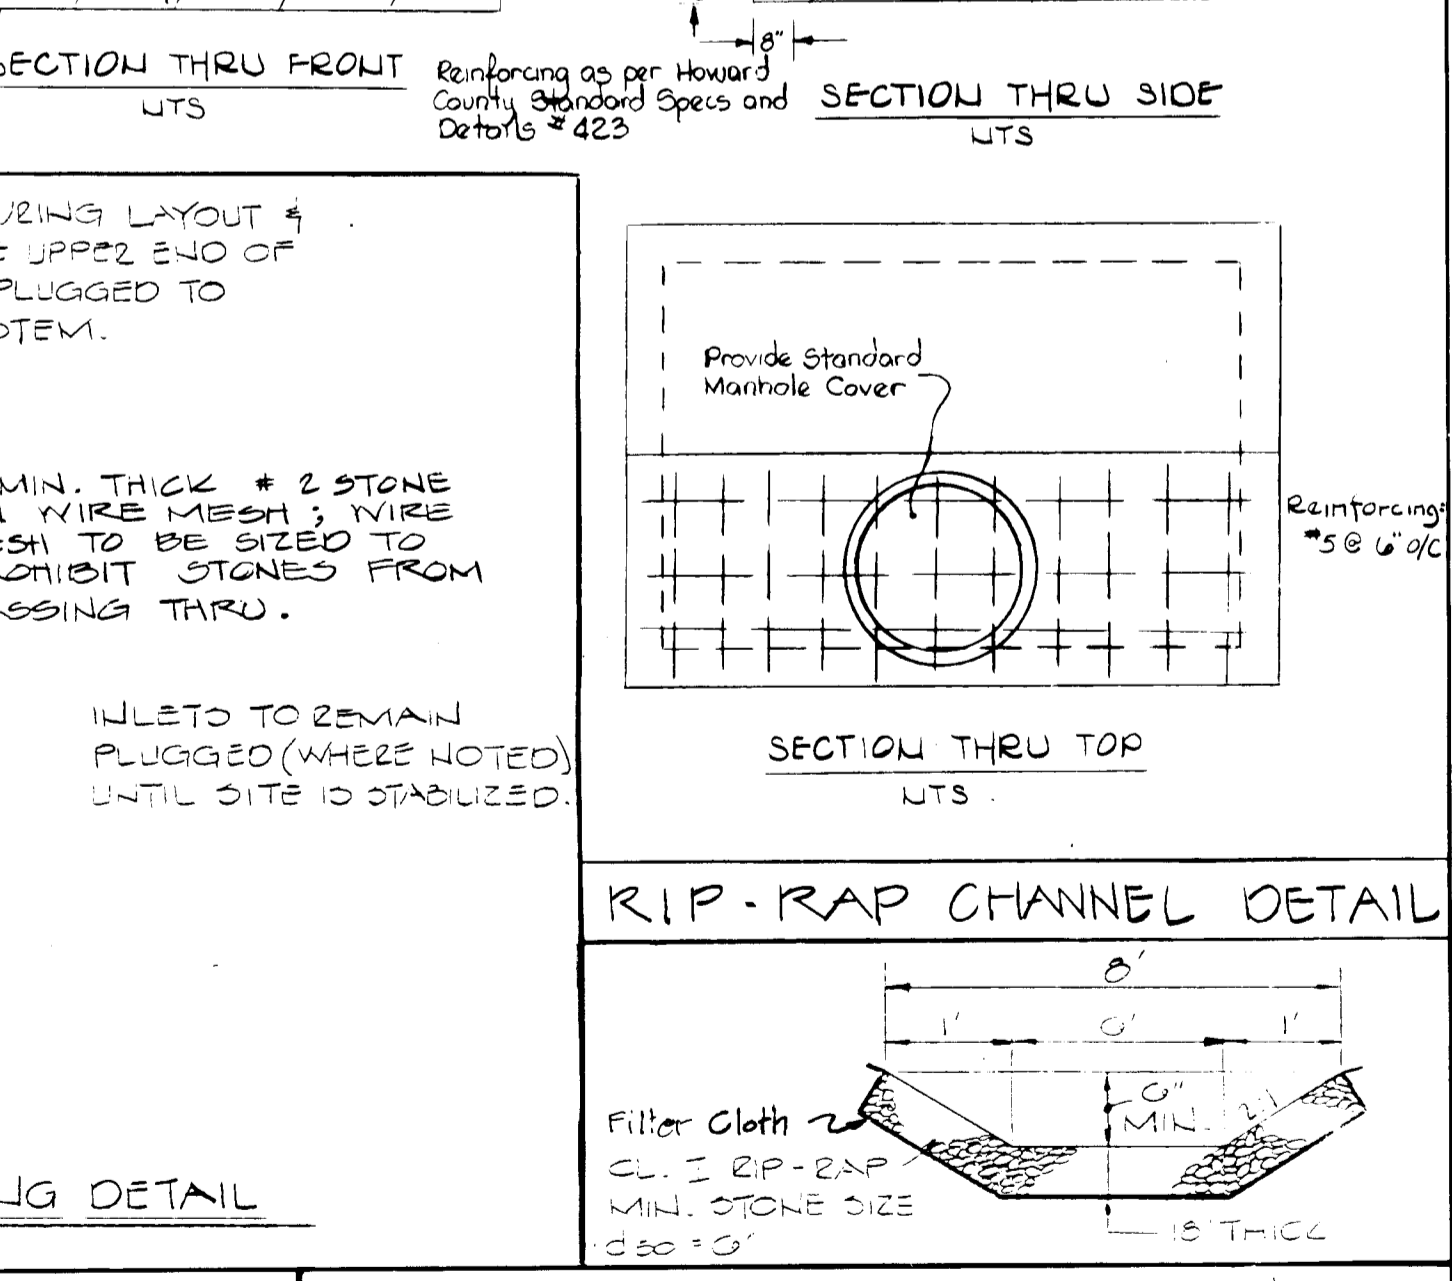 8"
SECTION THRU FRONT
NTS
Reinforcing as per Howard
County Standard Specs and
Details #423
SECTION THRU SIDE
NTS
LAYOUT &
UPPER END OF
PLUGGED TO
MIN. THICK # 2 STONE
WIRE MESH ; WIRE
TO BE SIZED TO
STONES FROM
THRU.
INLETS TO REMAIN
PLUGGED (WHERE NOTED)
UNTIL SITE IS STABILIZED.
DETAIL
Provide Standard
Manhole Cover
Reinforcing:
#5 @ 6" O/C
SECTION THRU TOP
NTS
RIP-RAP CHANNEL DETAIL
8'
1' 1'
6"
MIN.
2:1
Filter Cloth
CL. I RIP-RAP
MIN. STONE SIZE
d50 =
18" THICK